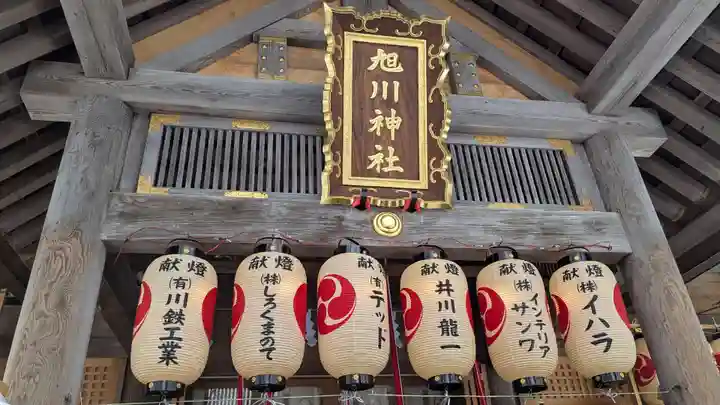 旭川神社
献燈
(有)川鉄工業
献燈
(株)しろくまのて
献
(有)テッド
献燈
井川龍一
献燈
(株)インテリア
サンワ
献燈
(株)イハラ